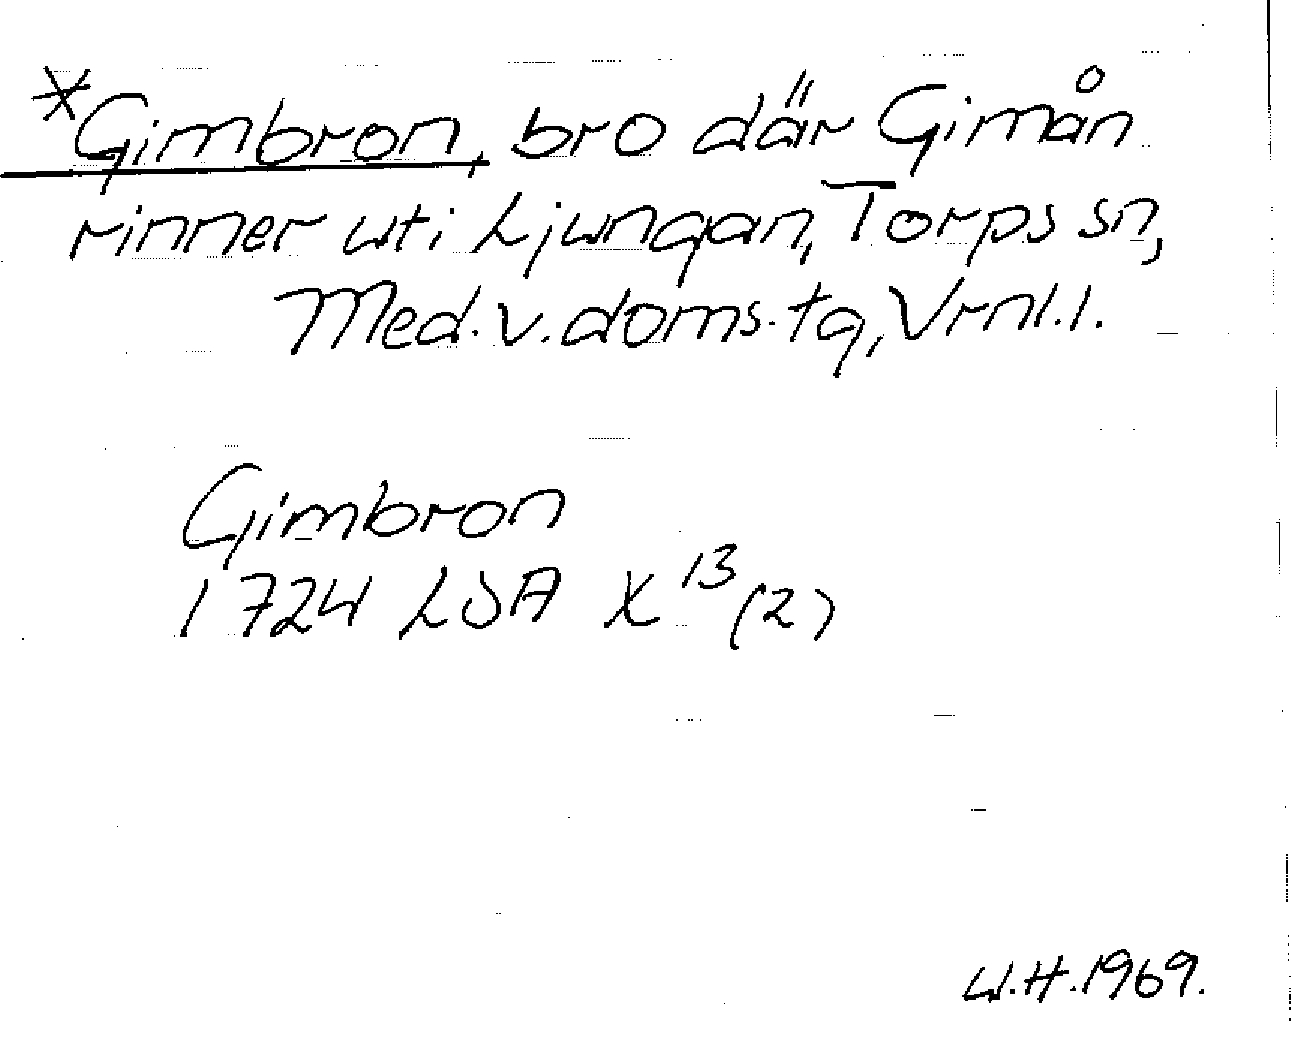 *Gimbron, bro där Gimån
rinner uti Ljungan, Torps sn,
Med. v. doms. tg, Vrnl. l.
Gimbron
1724 LSA X 13 (2)
W.H. 1969.